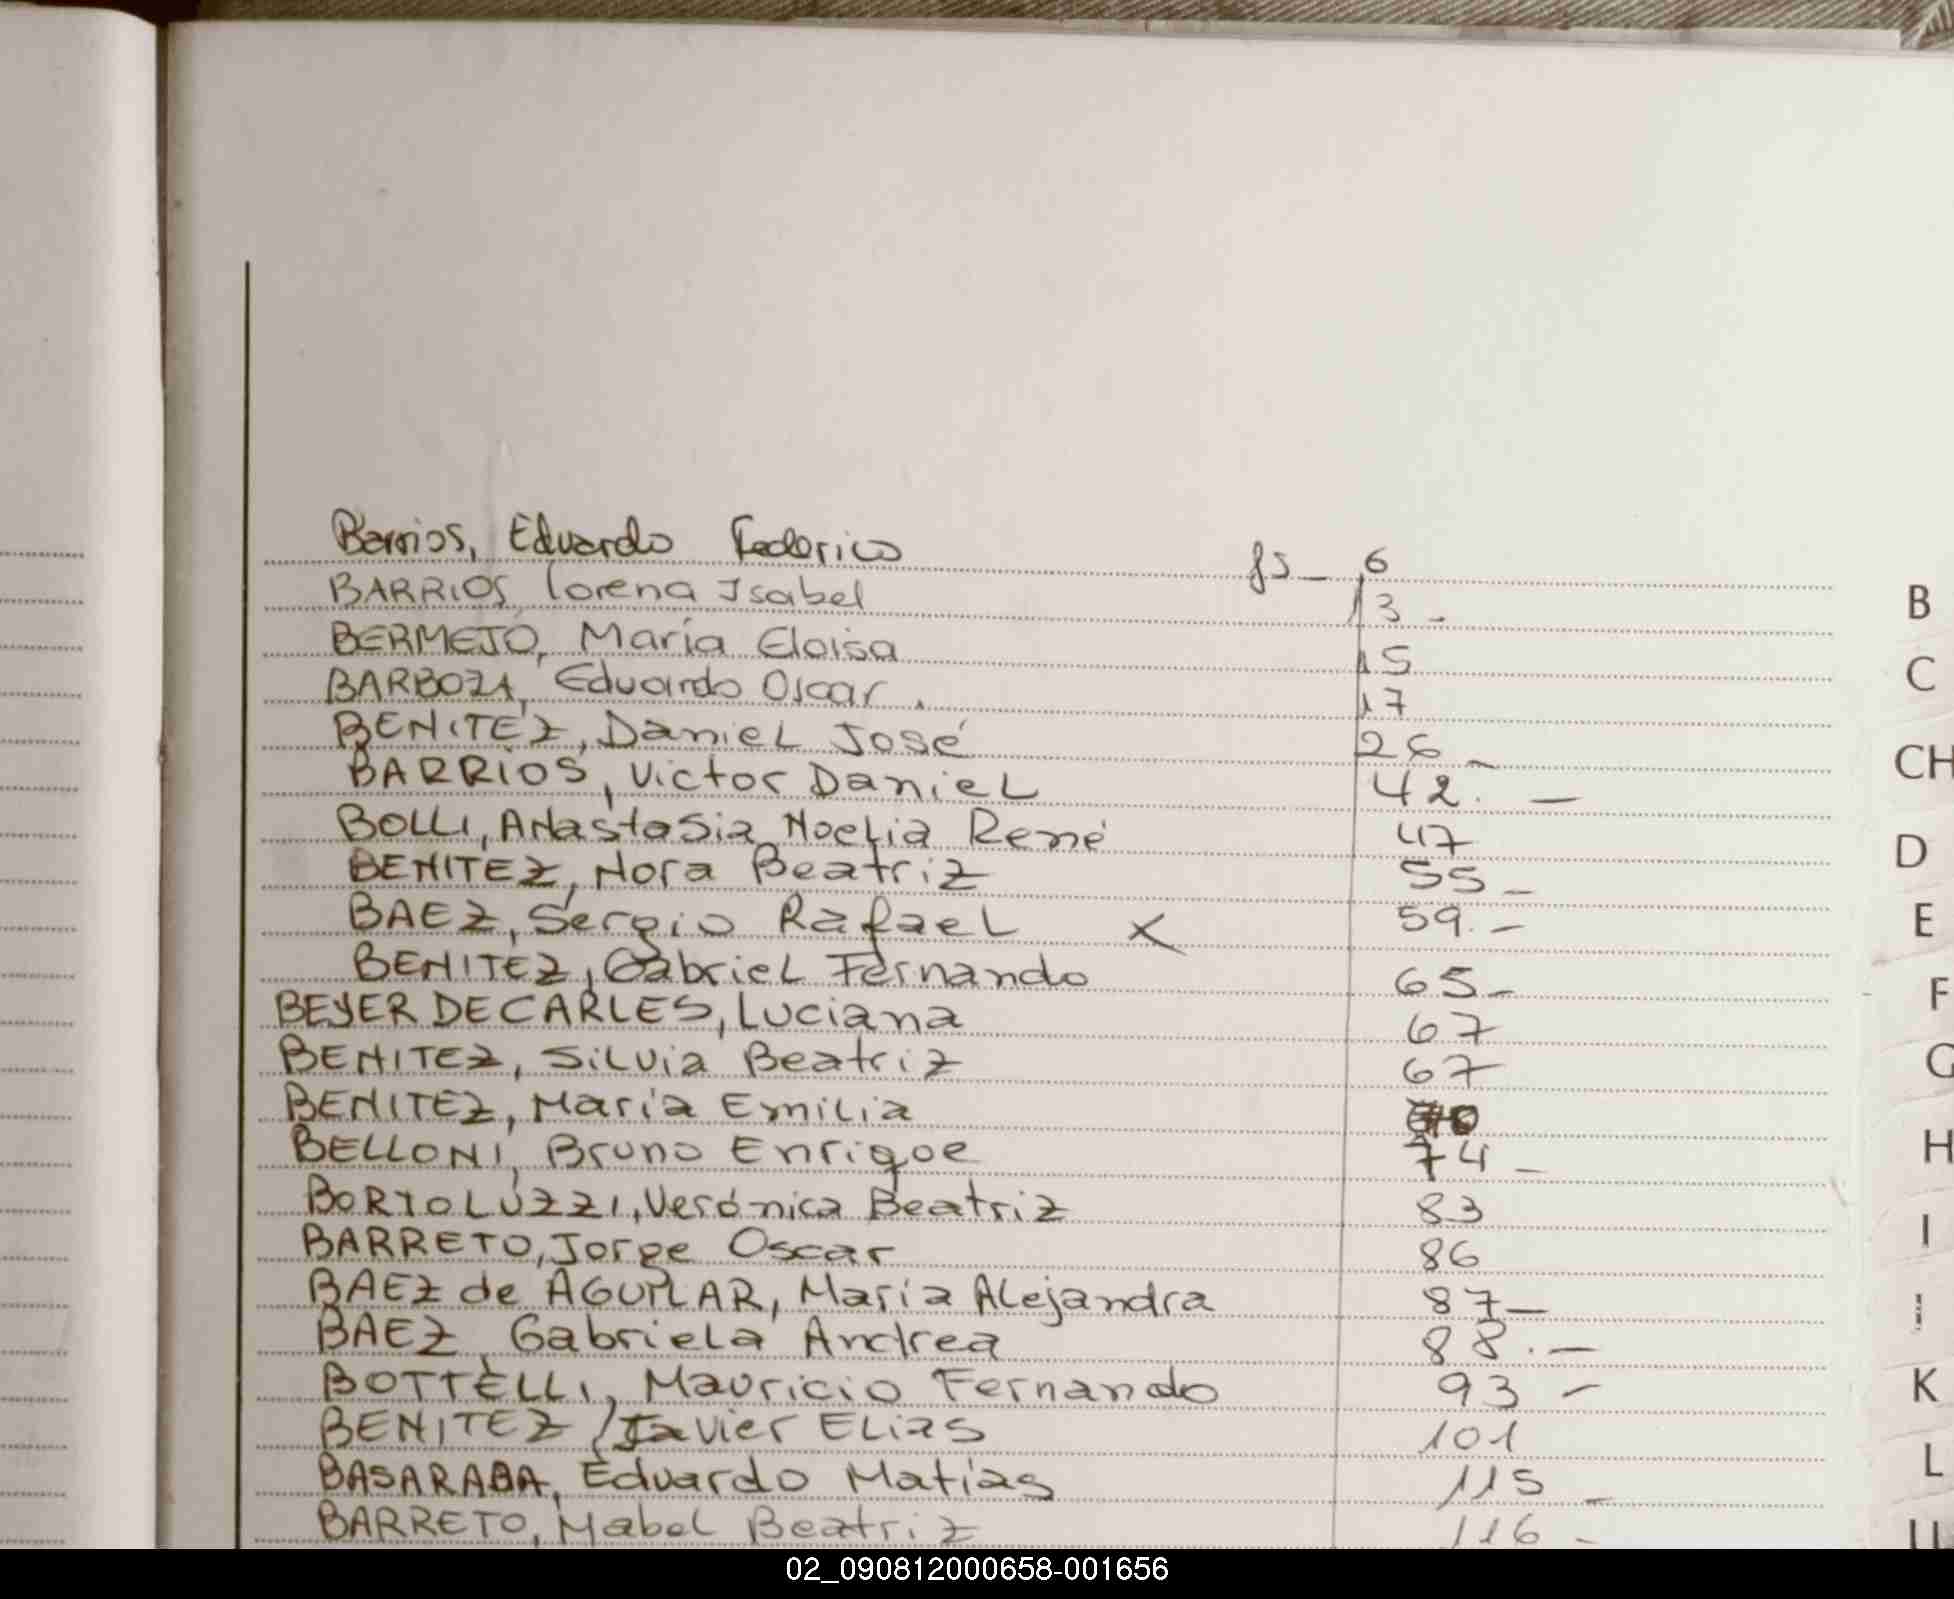 Barrios, Eduardo Federico fs_ 6
BARRIOS Lorena Isabel 13.
BERMEJO, María Eloisa 15
BARBOZA, Eduardo Oscar. 17
BENITEZ, Daniel José 26_
BARRIOS, Victor Daniel 42. —
BOLLI, Anastasia Noelia René 47
BENITEZ, Nora Beatriz 55_
BAEZ, Sergio Rafael X 59.—
BENITEZ, Gabriel Fernando 65_
BEYER DE CARLES, Luciana 67
BENITEZ, Silvia Beatriz 67
BENITEZ, María Emilia
BELLONI, Bruno Enrique 74_
BORTOLUZZI, Verónica Beatriz 83
BARRETO, Jorge Oscar 86
BAEZ de AGUILAR, María Alejandra 87—
BAEZ, Gabriela Andrea 88.—
BOTTELLI, Mauricio Fernando 93 —
BENITEZ, Javier Elias 101
BASARABA, Eduardo Matías 115 _
BARRETO, Mabel Beatriz 116 -
B
C
CH
D
E
F
G
H
I
J
K
L
02_090812000658-001656